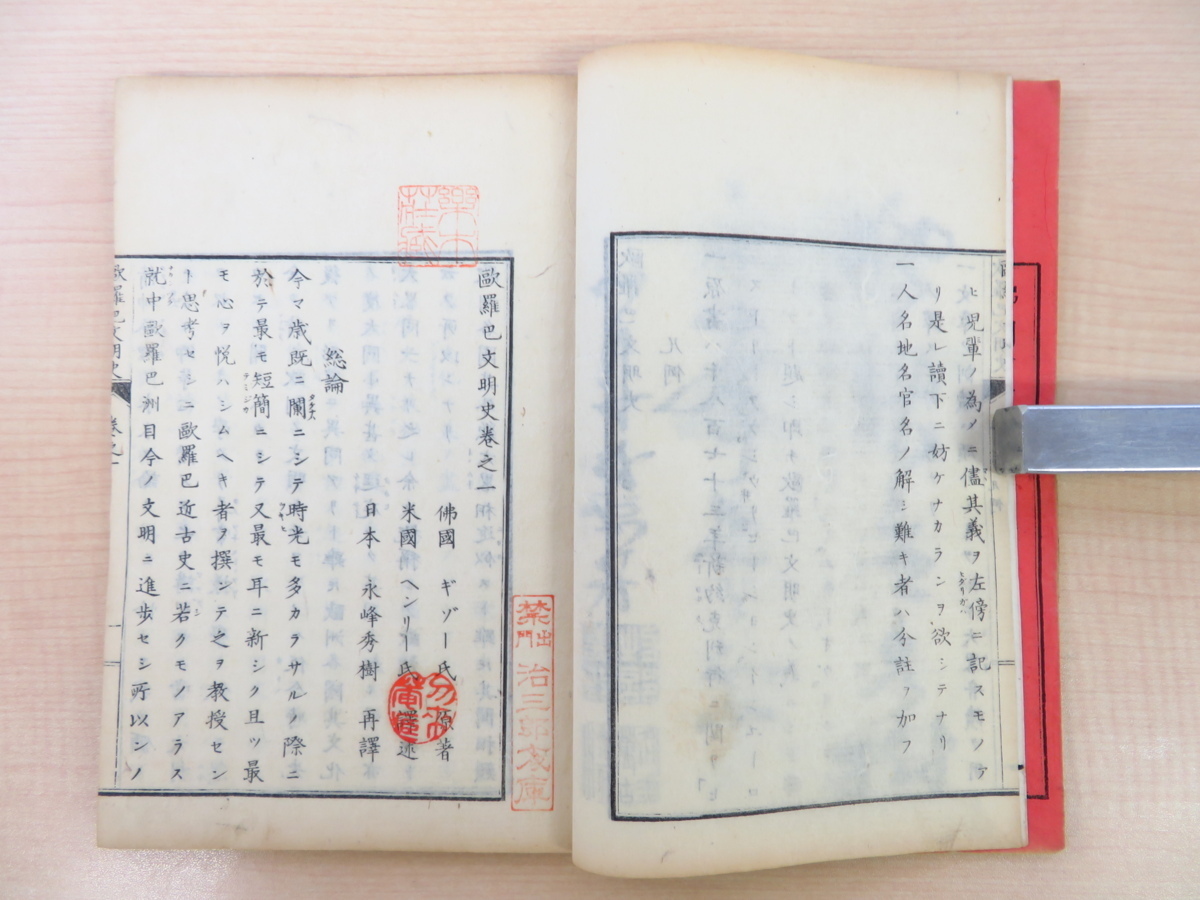 ヒ児輩ノ為メニ儘其義ヲ左傍ニ記スモノテ
リ是レ讀下ニ妨ケナカランヲ欲シテナリ
一人名地名官名ノ解シ難キ者ハ分註ヲ加フ
歐羅巴文明史卷之一
佛國 ギゾー氏 原著
米國 ヘンリー氏 譯述
日本 永峰秀樹 再譯
総論
今マ歳既ニ闌ニシテ時光モ多カラサルノ際ニ
於テ最モ短簡ニシテ又最モ耳ニ新シク且ツ最
モ心ヲ悦ハシムヘキ者ヲ撰ンテ之ヲ教授セン
ト思考セシニ歐羅巴近古史ニ若クモノアラス
就中歐羅巴洲目今ノ文明ニ進歩セシ所以ンノ
歐羅巴文明史 卷之一
禁門出 治三郎文庫